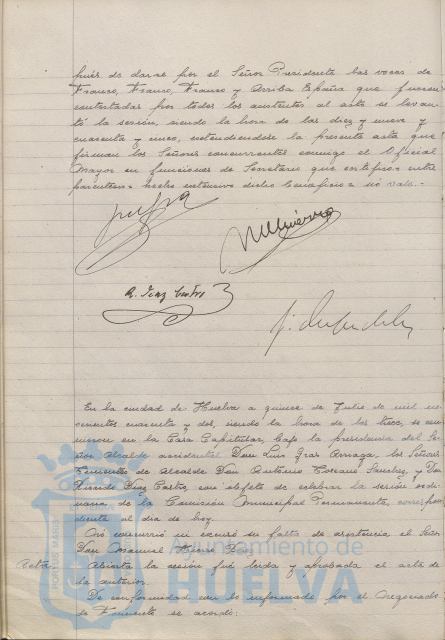 pués de darse por el Señor Presidente las voces de
Franco, Franco, Franco y Arriba España que fueron
contestadas por todos los asistentes al acto se levan-
tó la sesión, siendo la hora de las diez y nueve y
cuarenta y cinco, extendiendose la presente acta que
firman los Señores concurrentes conmigo el Oficial
Mayor en funciones de Secretario que certifico = entre
parentesis = hecho extensivo dicho beneficio = no vale.-
R. Diaz Castro
En la ciudad de Huelva a quince de Julio de mil no-
vecientos cuarenta y dos, siendo la hora de las trece, se reu-
nieron en la Casa Capitular, bajo la presidencia del Se-
ñor Alcalde accidental Don Luis Arriaga, los Señores
Tenientes de Alcalde Don Antonio Sanchez, y Don
Ricardo Diaz Castro, con objeto de celebrar la sesión ordi-
naria de la Comisión Municipal Permanente, correspon-
diente al dia de hoy.
No concurrió ni excusó su falta de asistencia el Señor
Don Manuel
Acta. Abierta la sesión fué leida y aprobada el acta de
la anterior.
De conformidad con lo informado por el Negociado
de Fomento se acordó:
PORTUS MARIS
Ayuntamiento de
HUELVA